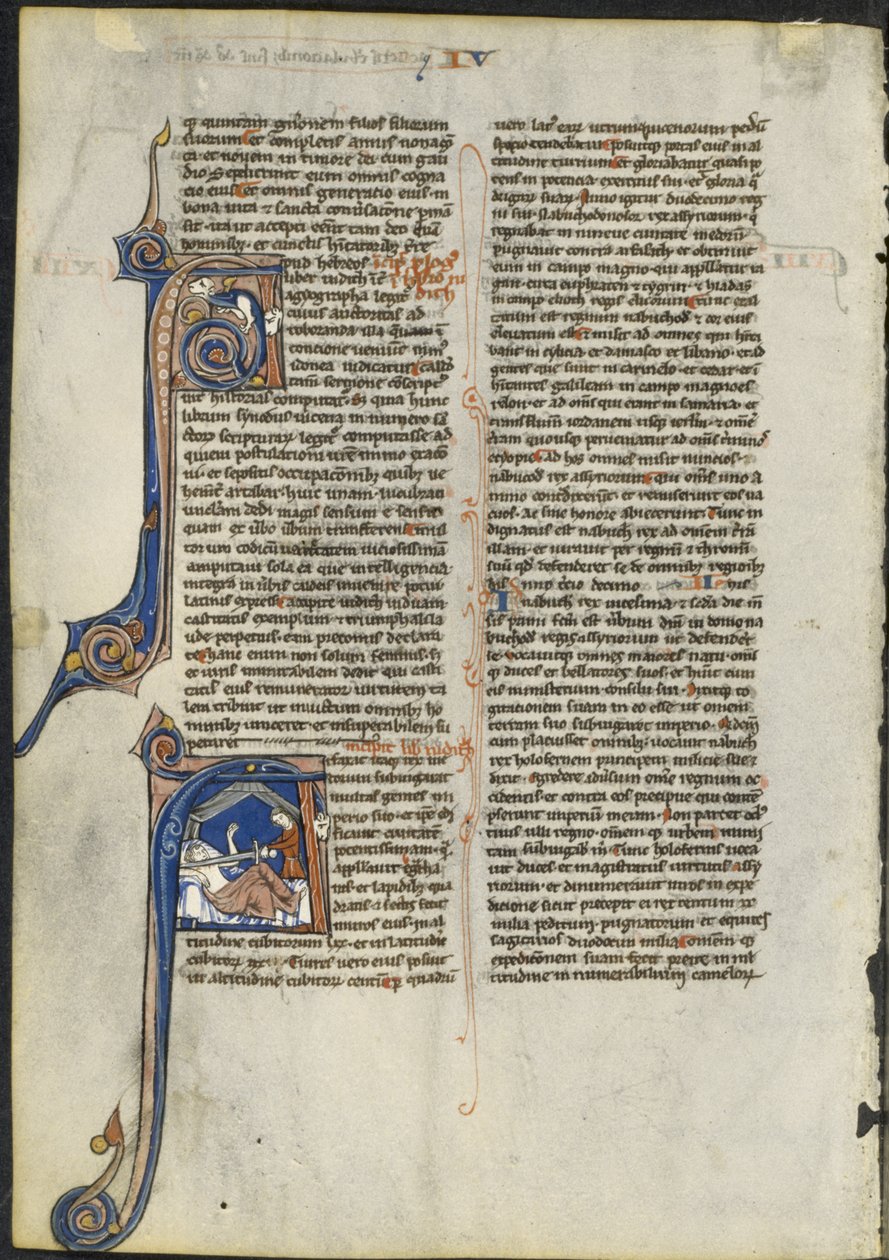 IV
qz quintam gn̄onem filios filiorum
suorum et completis annis nonagī
ta et novem in timore dei cum gau
dio Sepelierunt eum omnis cogna
cio eius et omnis generatio eius in
bona uita & sancta conūsacōne pmāsit
ita ut accepti eēnt tam deo quā
hominibz et cunctis hītatoribz ītre
Apud hebreos
liber iudith īt
agyographa legit̄
cuius auctoritas ad
roboranda illa que in
contione ueniunt min9
idonea iudicatur
tam̄ sermone
ut historias computat̄ S quia hunc
librum synodus nicena in numero sā
ctorum scripturarum legit̄ computasse ad
quieui postulationi
et sepositis occupacōnibz quibz ue
huic unam lucubrati
unculam dedi magis sensum e sensu
quam ex ūbo ūbum transferens
torum codicū uarietatem uiciosissimā
amputaui sola ea que intelligencia
integra in ūbis caldeis inuenire potui
latinis expressi accipite iudith uiduam
castitatis exemplum & triumphali la
ude perpetuis eam preconiis declara
te hanc enim non solum feminis s
et uiris imitabilem dedit qui casti
tatis eius remunerator uirtutem ta
lem tribuit ut inuictum omnibz ho
minibz uinceret et insuperabilem su
peraret
incipit lib iudith
Arfaxat itaqz rex me
dorum subiugarat
multas gentes im
perio suo et ipe edi
ficauit ciuitatē
potentissimam q̄
appellauit egbtha
nis et lapidibz qua
dratis & sectis fecit
muros eius in al
titudine cubitorum lxx et in latitudīe
cubitorz xxx Turres uero eius posuit
in altitudine cubitorz centū p quadrū
uero lat9 earz utrumqz uicenorum pedū
spacio tendebatur posuitqz portas eius in al
titudine turrium et gloriabatur quasi po
tens in potencia exercitus sui et gloria q̄
drigarz suarz Anno igitur duodecimo reg
ni sui Nabuchodonosor rex assyriorum q̄
regnabat in niniue ciuitate
pugnauit contra arfaxath et obtinuit
eum in campo magno qui appellatur ra
gau circa eufraten & tygrin & hiadas
in campo erioch regis elicorum Tunc exal
tatum est regnum nabuchod & cor eius
eleuatum est & misit ad omnes qui hīti
bant in cylicia et damasco et libano et ad
gentes que sunt in carmelo et cedar et ī
hītantes galileam in campo magno es
relon et ad omīs qui erant in samaria et
trans flumē iordanem usqz ierlm̄ & omē
trram quousqz perueniatur ad omīs tminos
ethyopie Ad hos omnes misit nuncios
nabucod rex assyriorum qui omīs uno a
nimo contdixerunt et remiserunt eos ua
cuos ac sine honore abiecerunt Tunc in
dignatus est nabuch rex ad omēm trrā
illam et iurauit per regnū & thronū
suū qd defenderet se de omnibz regionibz
his Anno tcio decimo II
nabuch rex uicesima & scda die mē
sis primi fcm̄ est ūbum dm̄ in domo na
buchod regis assyriorum ut defenderet
se Vocauitqz omnes maiores natu omīs
qz duces et bellatores suos et hūit cum
eis misterium consilii sui Dixitqz co
gitationem suam in eo esse ut omem
terram suo subiugaret imperio Qd dcm̄
cum placuisset omnibz uocauit nabuch
rex holofernem principem milicie sue &
dixit Egredere aduersum omē regnum oc
cidentis et contra eos precipue qui contē
pserunt imperiū meum Non parcet ocl9
tuus ulli regno omēm qz urbem muni
tam subiugabis m̄ Tunc holofernis uoca
uit duces et magistratus uirtutis assy
riorum et dinumerauit uiros in expe
dicione sicut precepit ei rex centum xx
milia peditum pugnatorum et equites
sagitarios duodecim milia Omēm qz
expedicōnem suam fecit preire in ml
titudine in numerabilium camelorz